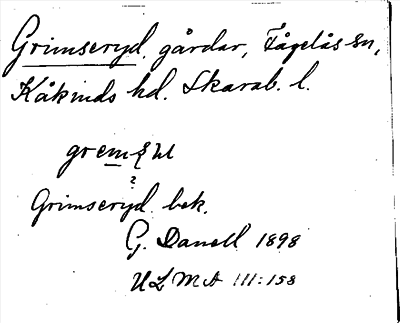 Grimseryd. gårdar, Fågelås sn,
Kåkinds hd. Skarab. l.
?
Grimseryd bek.
G. Danell 1898
ULMA 111:158